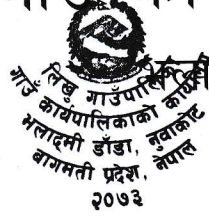 लिखु गाउँपालिका
गाउँ कार्यपालिकाको
भलादमी डाँडा, नुवाकोट
बागमती प्रदेश, नेपाल
२०७३